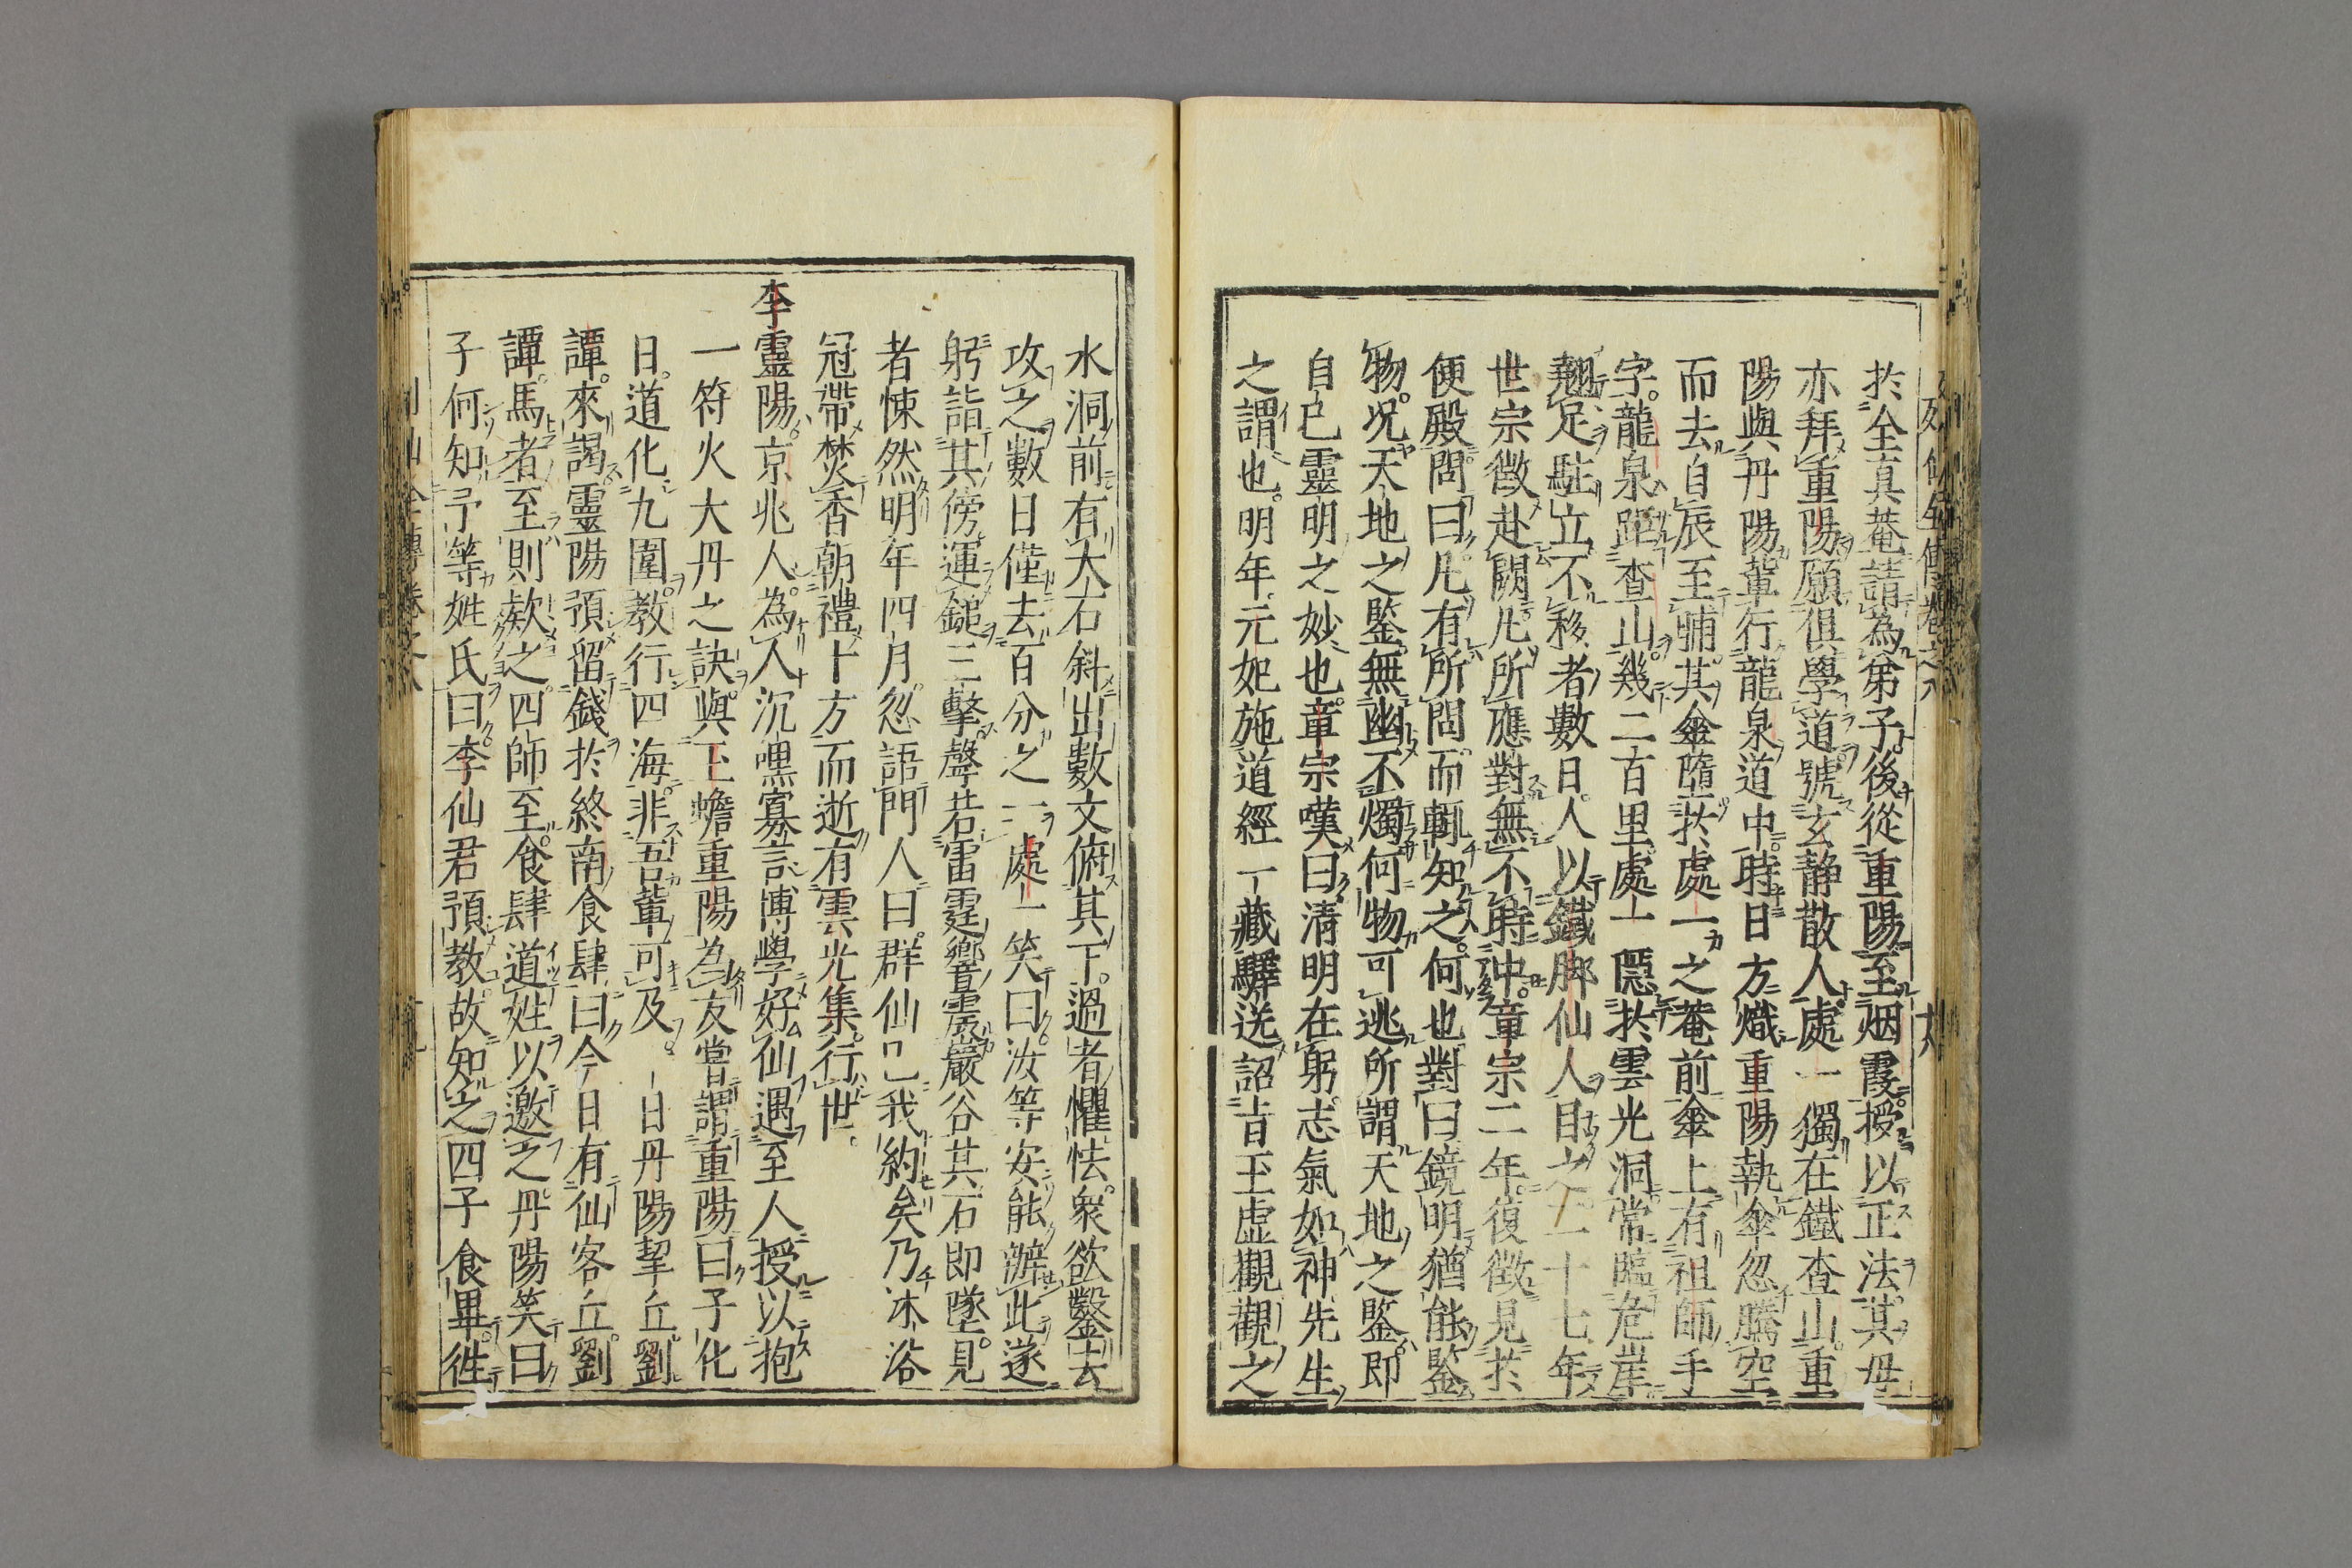 於全真菴請為弟子後從重陽至烟霞授以正法其母
亦拜重陽願俱學道號玄静散人處一獨在鐵查山重
陽與丹陽軰行龍泉道中時日方熾重陽執傘忽騰空
而去自辰至晡其傘墮於處一之菴前傘上有祖師手
字龍泉距查山幾二百里處一隠於雲光洞常臨危崖
翹足駐立不移者數日人以鐵脚仙人目之二十七年
世宗徴赴闕凡所應對無不時中章宗二年復徴見於
便殿問曰凡有所問而輙知之何也對曰鏡明猶能鑒
物况天地之鑒無幽不燭何物可逃所謂天地之鑒即
自己靈明之妙也章宗嘆曰清明在躬志氣如神先生
之謂也明年元妃施道經一藏驛送詔旨玉虚觀觀之
水洞前有大石斜出數丈俯其下過者懼怯衆欲鑿去
攻之數日僅去百分之一處一笑曰汝等安能 此遂
躬詣其傍運鎚三擊聲若雷霆響震巖谷其石即墜見
者悚然明年四月忽語門人曰群仙 我約矣乃沐浴
冠帶焚香朝禮十方而逝有雲光集行世
李靈陽京兆人為人沉嘿寡言博學好仙遇至人授以抱
一符火大丹之訣與玉蟾重陽為友嘗謂重陽曰子化
日道化九圍教行四海非吾軰可及一日丹陽挈丘劉
譚來謁靈陽預留錢於終南食肆曰今日有仙客丘劉
譚馬者至則欵之四師至食肆道姓以邀之丹陽笑曰
子何知予等姓氏曰李仙君預教故知之四子食畢徃